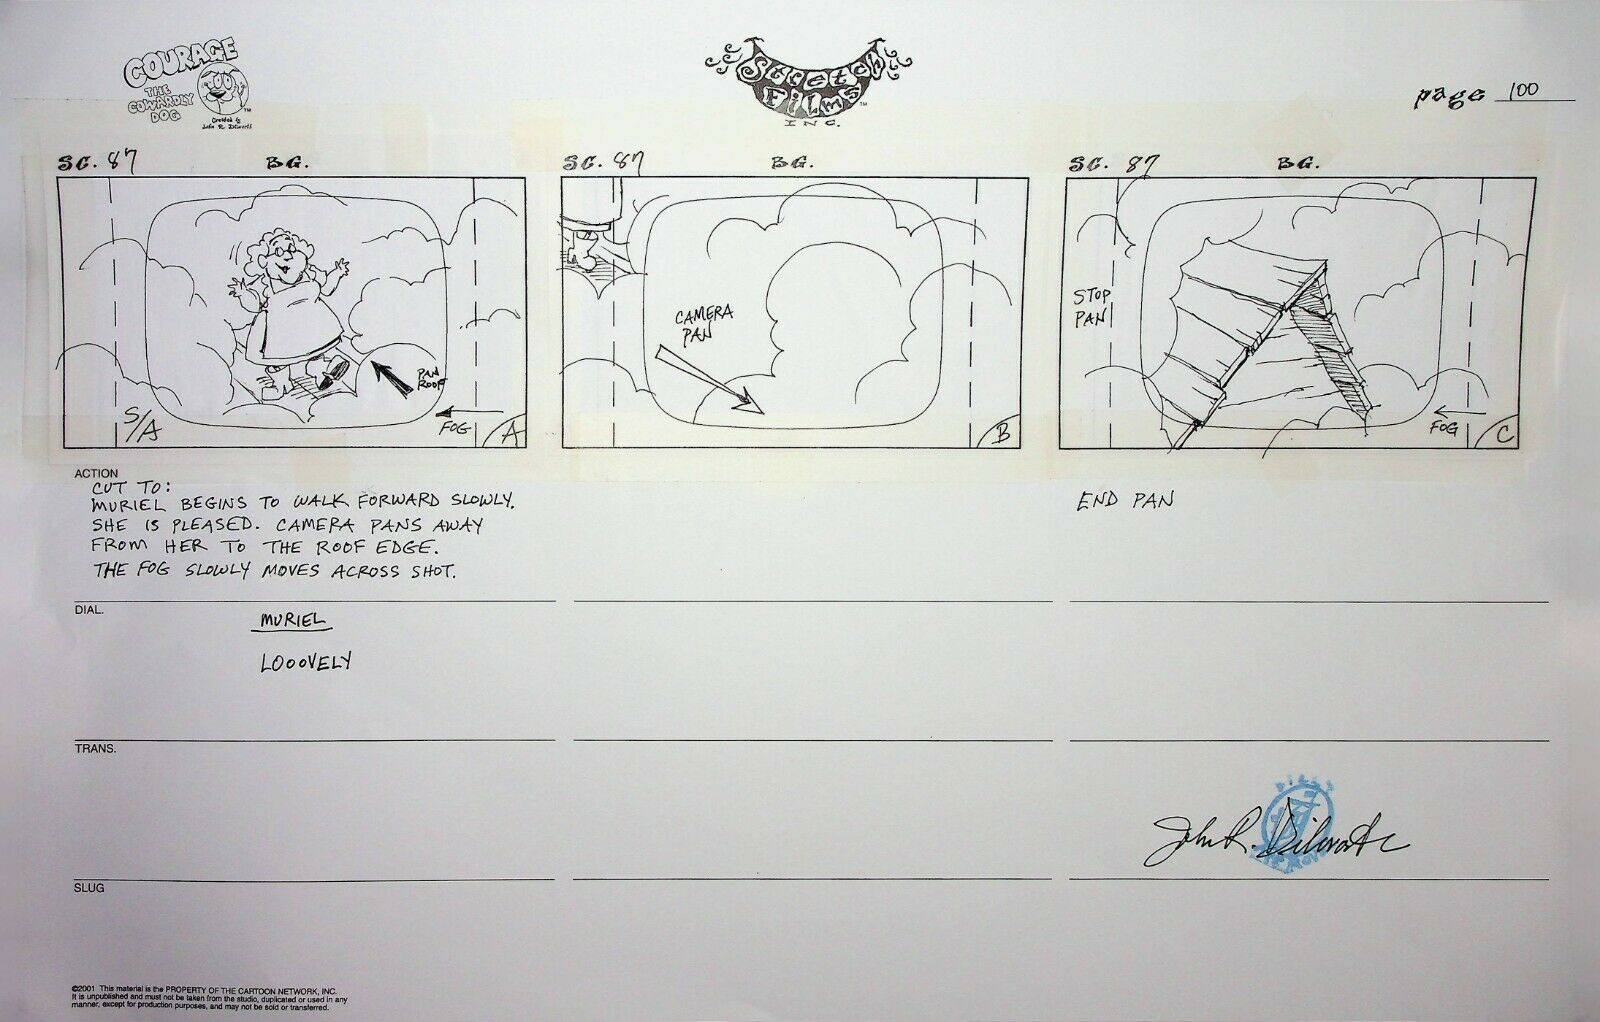 COURAGE
THE
COWARDLY
DOG
Created by
John R. Dilworth
TM
Stretch
Films
INC.
page 100
SC. 87 BG.
SC. 87 BG.
SC. 87 BG.
PAN
ROOF
S/A
FOG
A
CAMERA
PAN
B
STOP
PAN
FOG
C
ACTION
CUT TO:
MURIEL BEGINS TO WALK FORWARD SLOWLY.
SHE IS PLEASED. CAMERA PANS AWAY
FROM HER TO THE ROOF EDGE.
THE FOG SLOWLY MOVES ACROSS SHOT.
END PAN
DIAL.
MURIEL
LOOOVELY
TRANS.
John R. Dilworth
SLUG
©2001 This material is the PROPERTY OF THE CARTOON NETWORK, INC.
It is unpublished and must not be taken from the studio, duplicated or used in any
manner, except for production purposes, and may not be sold or transferred.